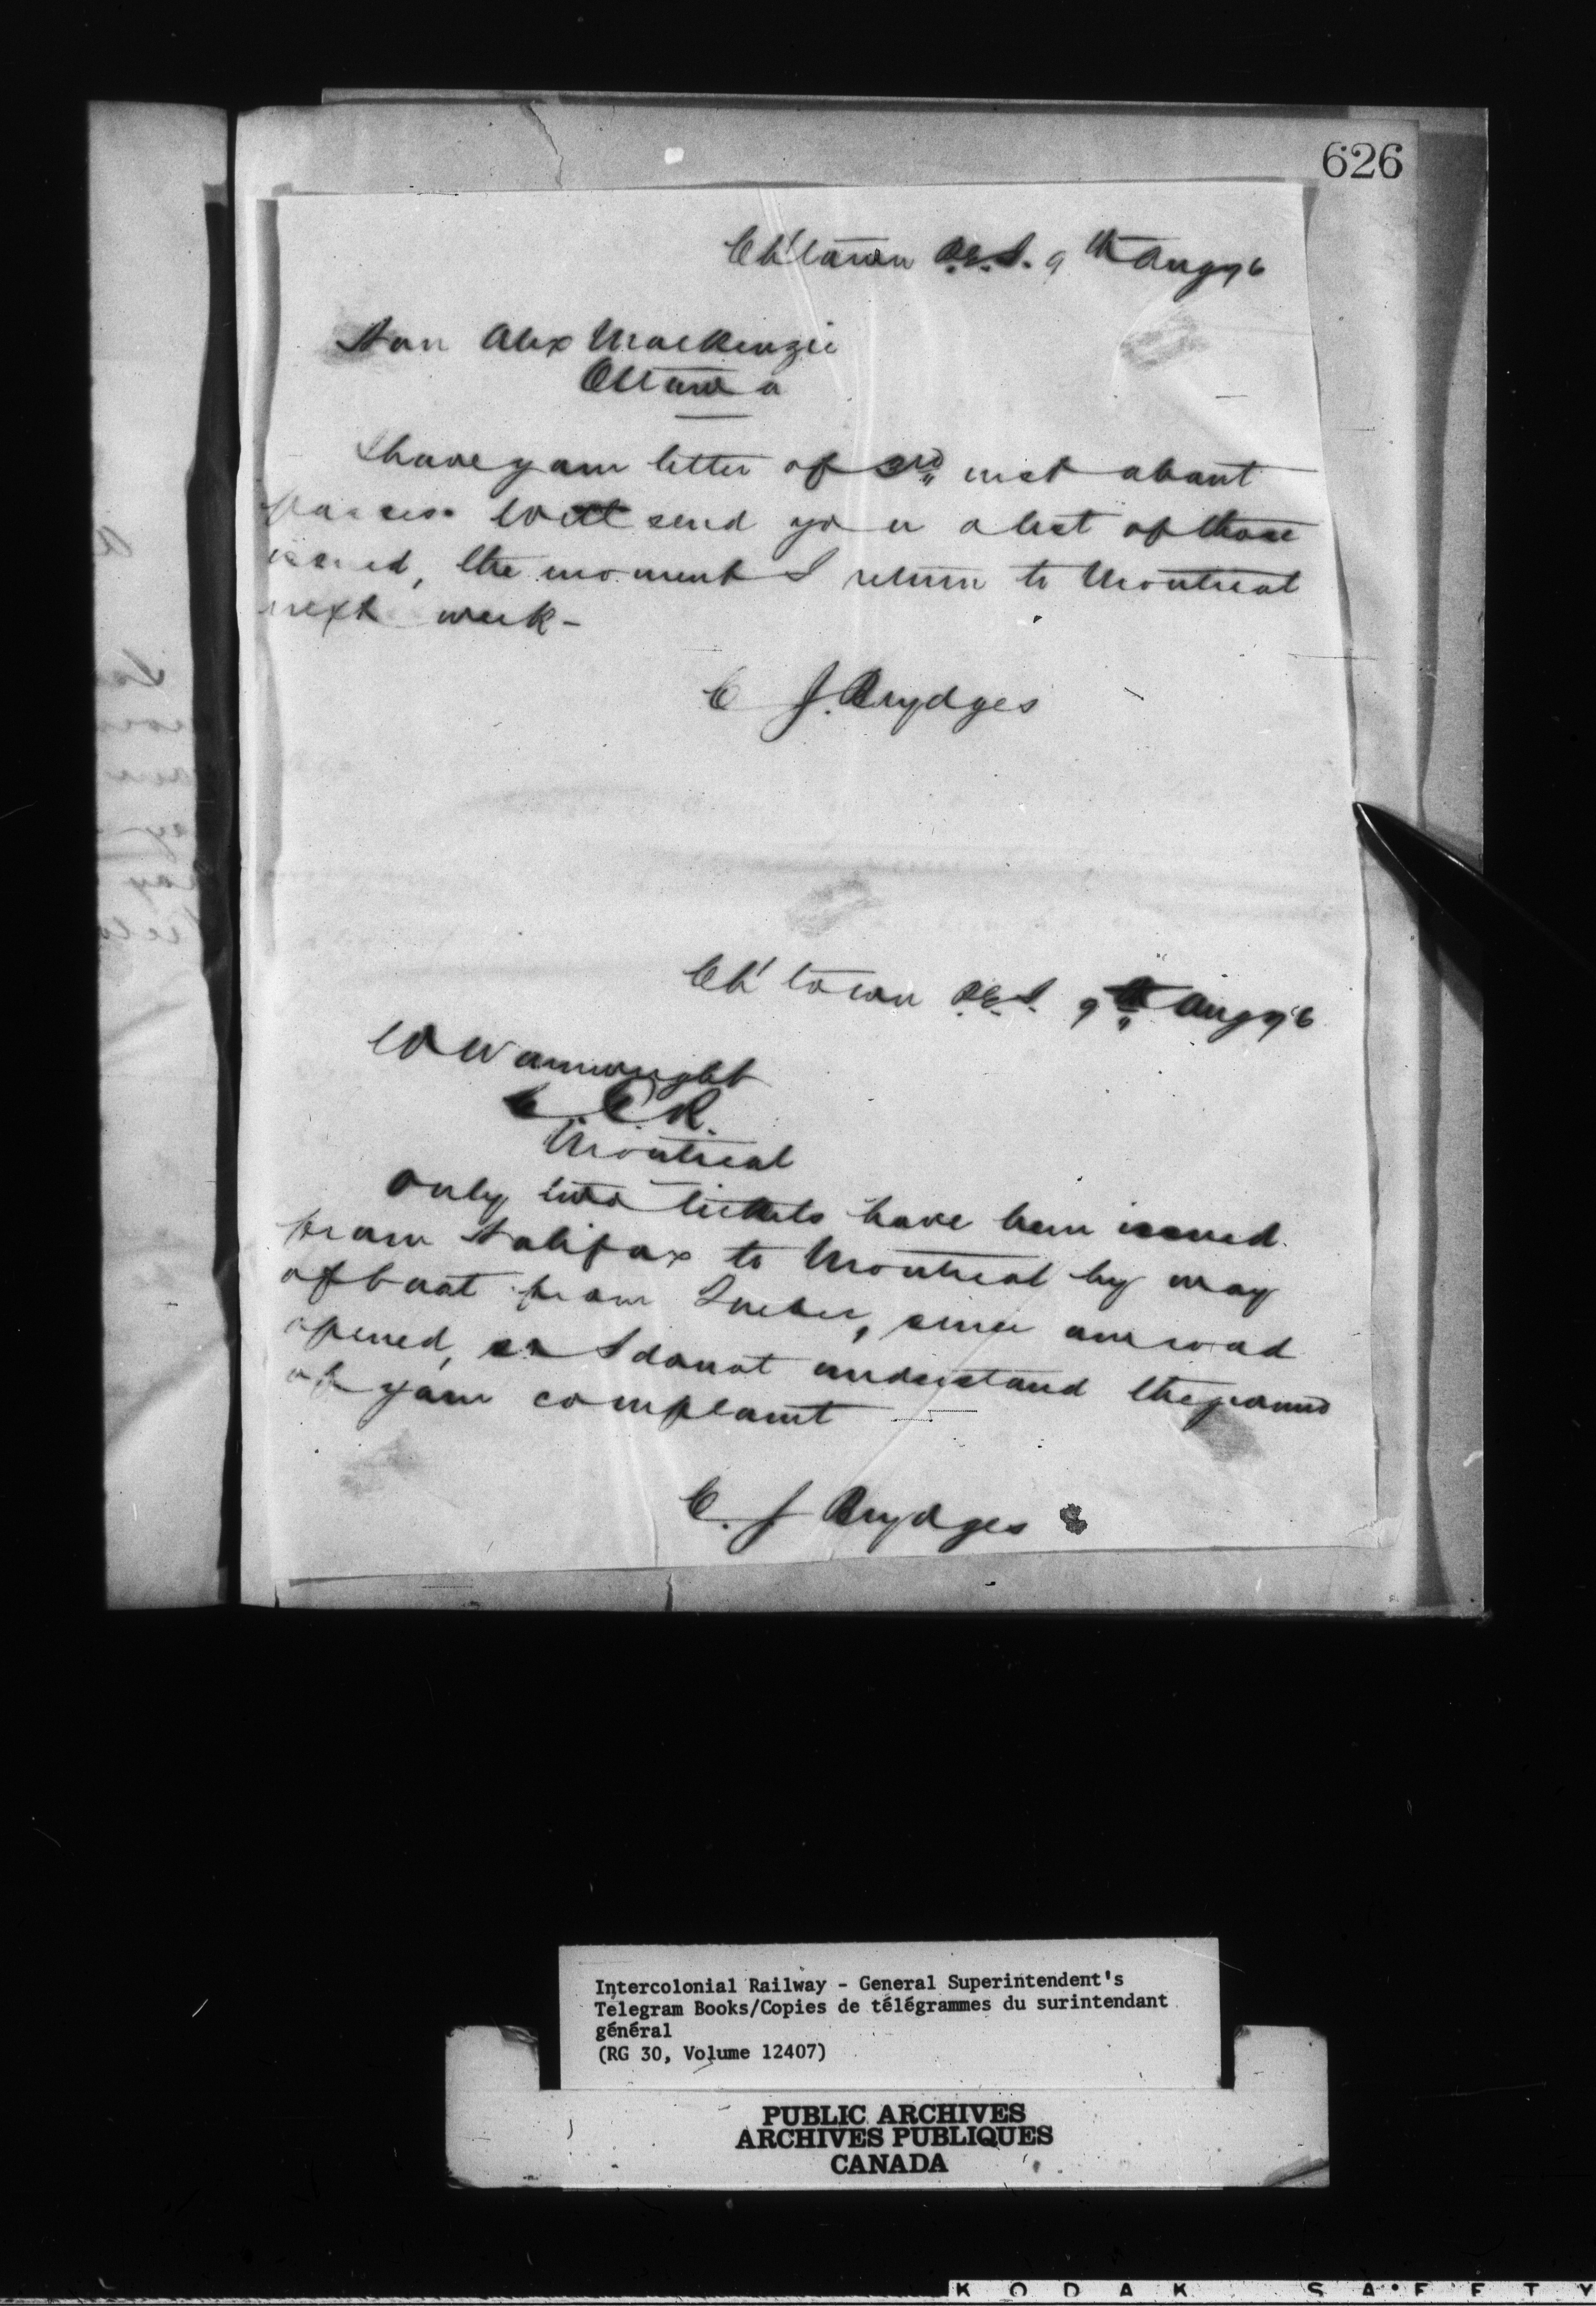 626
Ch'town P.E.I. 9th Aug 76
Hon Alex Mackenzie
Ottawa
I have your letter of 3rd inst about
passes. Will send you a list of those
issued, the moment I return to Montreal
next week -
C J. Brydges
Ch'town P.E.I. 9th Aug 76
W Wainwright
G.T.R.
Montreal
Only two tickets have been issued
from Halifax to Montreal by way
of boat from Quebec, since our road
opened, so I do not understand the ground
of your complaint
C. J Brydges
Intercolonial Railway - General Superintendent's
Telegram Books/Copies de télégrammes du surintendant
général
(RG 30, Volume 12407)
PUBLIC ARCHIVES
ARCHIVES PUBLIQUES
CANADA
KODAK SAFETY